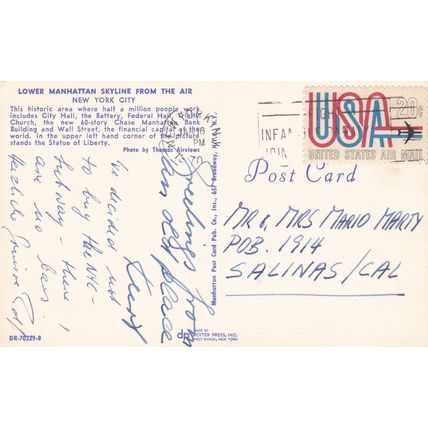 LOWER MANHATTAN SKYLINE FROM THE AIR
NEW YORK CITY
This historic area where half a million people work,
includes City Hall, the Battery, Federal Hall, Trinity
Church, the new 60-story Chase Manhattan Bank
Building and Wall Street, the financial capital of the
world. In the lower left-hand corner of the picture
stands the Statue of Liberty.
Photo by Thomas Airviews
Greetings from
an old place
We decided not
to buy the NYC-
subway - there
are no bears
Manhattan Post Card Pub. Co., Inc., 657 Broadway, N.Y.
DR-70329-B
dp
MADE BY
DEXTER PRESS, INC.
WEST NYACK, NEW YORK
PM
70
USA 20c
UNITED STATES AIR MAIL
Post Card
MR & MRS MARIO MARTY
POB. 1914
SALINAS/CAL